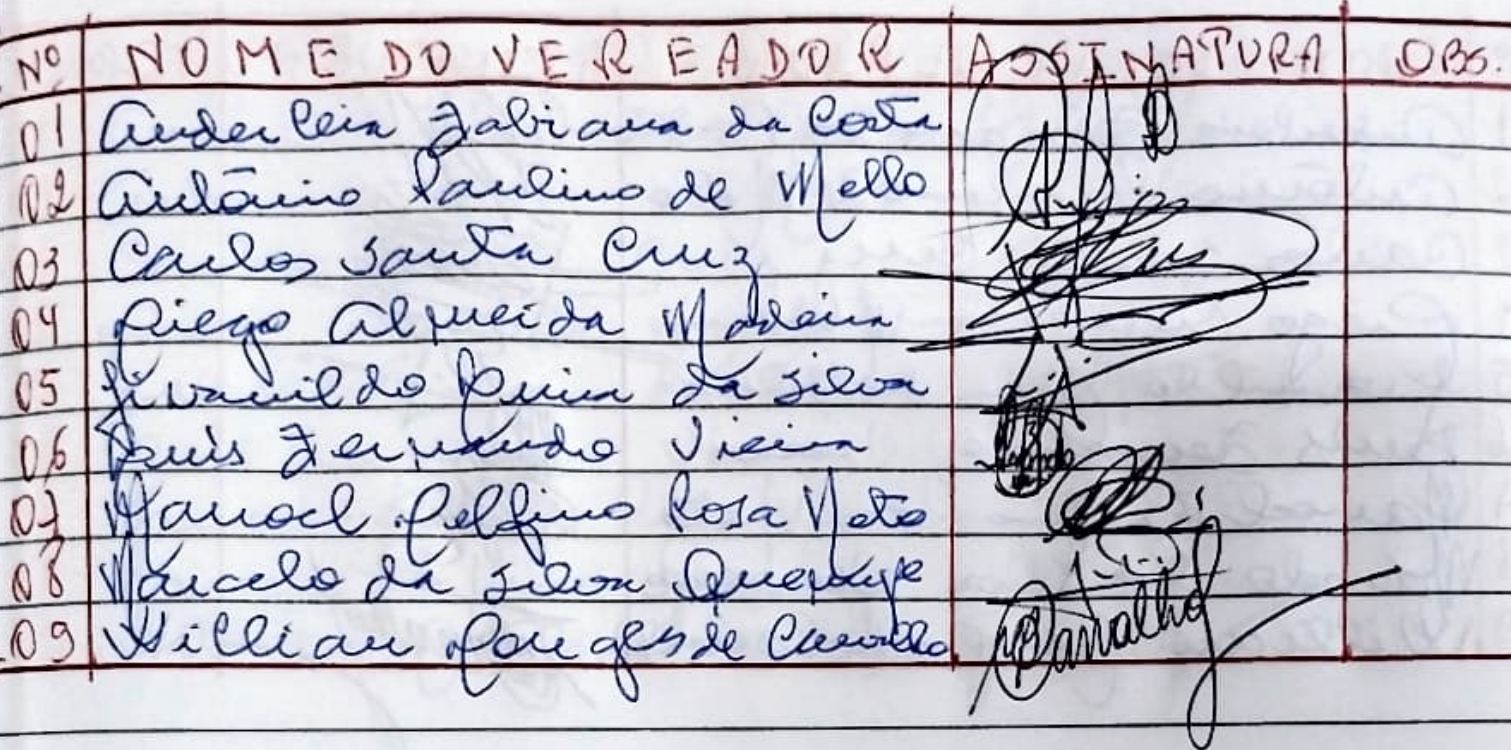 Nº NOME DO VEREADOR ASSINATURA OBS.
01 Anderleia Fabiana da Costa
02 Antônio Paulino de Mello
03 Carlos Santa Cruz
04 Diego Almeida Madeira
05 Jivanildo da Silva
06 Luis Fernando Vieira
07 Manoel Delfino Rosa Neto
08 Marcelo da Silva
09 Willian de Carvalho Carvalho